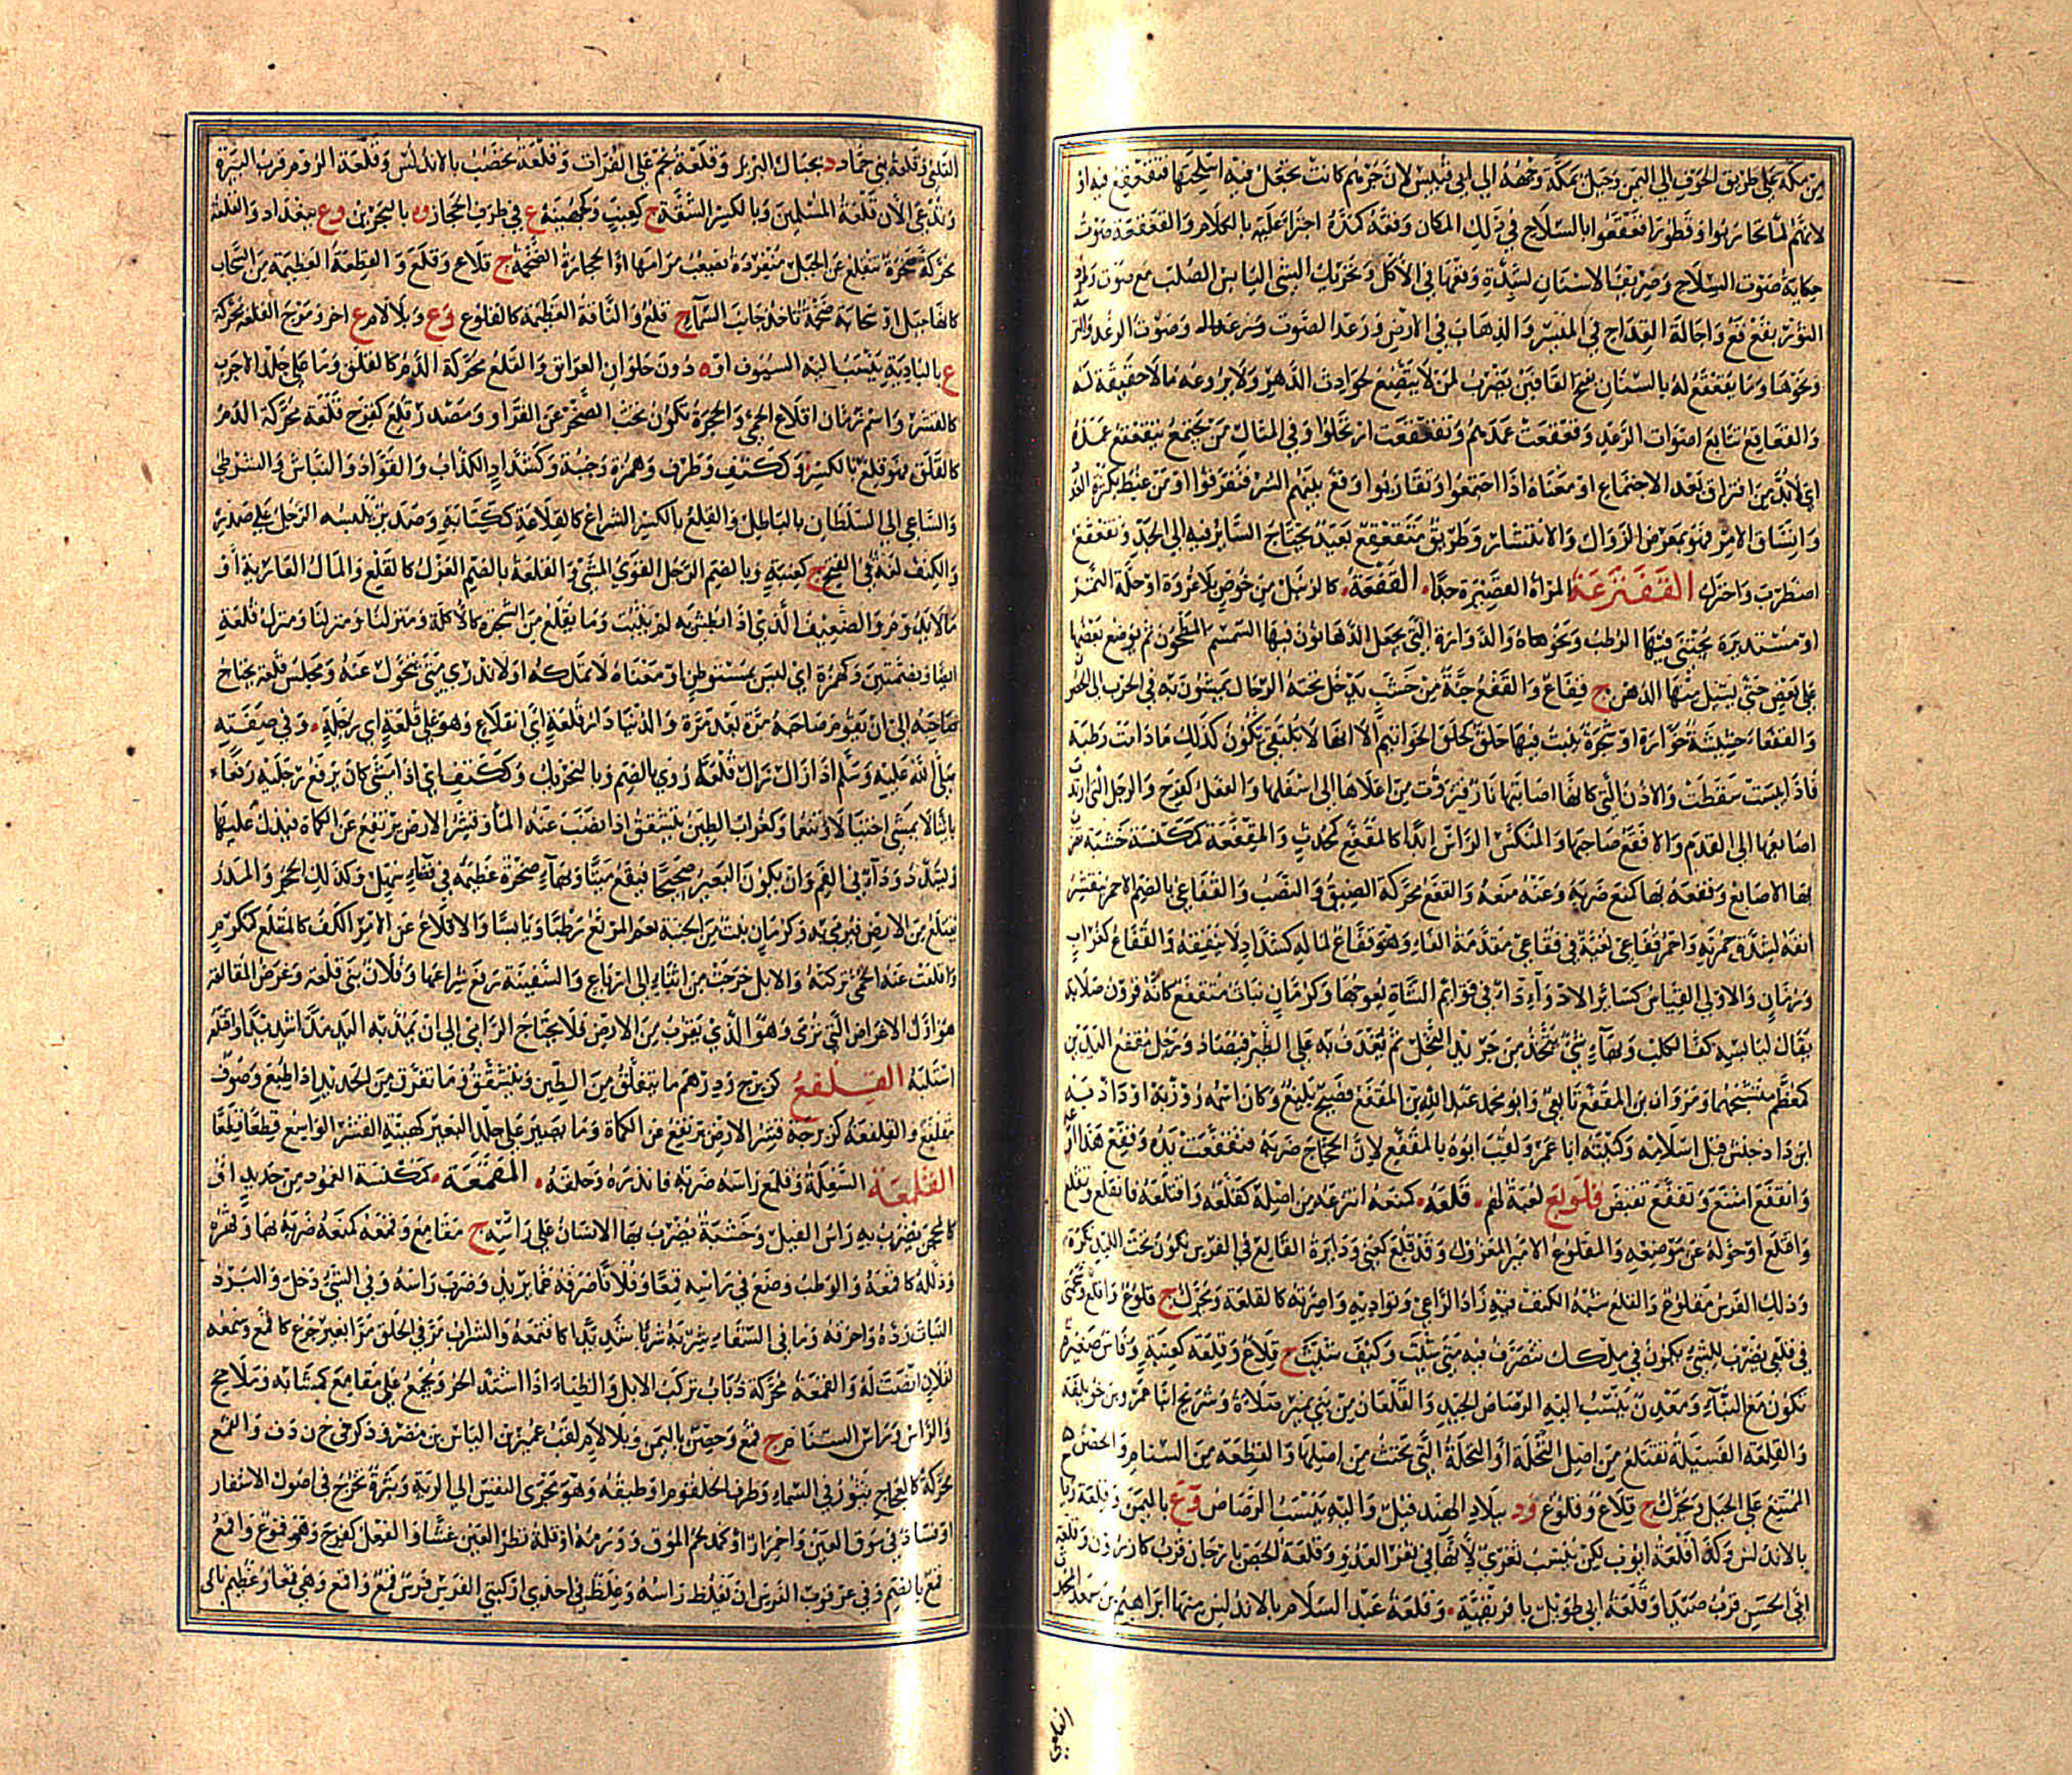 من مكة على طريق الخوف الى اليمن وجبل بمكة وجهه الى ابى قبيس لان جرهم كانت تجعل فيه اسلحتها فتقعقع فيه او
لانهم لما تحاربوا وقطورا قعقعوا بالسلاح في ذلك المكان وقعقعه كمده اجترأ عليه بالكلام والقعقعة صوت
حكاية صوت السلاح وصريف الاسنان لشدة وقعها في الاكل وتحريك الشئ اليابس الصلب مع صوت وطرد
الثور بقع قع واجالة القداح في الميسر والذهاب في الارض ورعد الصوت وصوت الرعد والترسة
ونحوها وما يقعقع له بالشنان بفتح القافين يضرب لمن لا يتضع لحوادث الدهر ولا يروعه ما لا حقيقة له
والقعاقع تتابع اصوات الرعد وقعقعت عمدهم وتقعقعت ارتحلوا وفي المثل من يجتمع يتقعقع عمده
اي لا بد من افتراق بعد الاجتماع او معناه اذا اجتمعوا وتقاربوا وقع بينهم الشر فتفرقوا او من غبط بكثرة العدد
واتساق الامر فهو بمعرض الزوال والانتشار وطريق متقعقع بعيد يحتاج السائر فيه الى الجد وتقعقع
اضطرب واتحرك القفنزعة المرأة القصيرة جدا القفعة كالزبيل من خوص بلا عروة او جلة التمر
او مستديرة يجتنى فيها الرطب ونحوها ه والدوارة التي يجعل الدهانون فيها السمسم المطحون ثم يوضع بعضها
على بعض حتى يسيل منها الدهن ج قفاع والقفع جنة من خشب يدخل تحته الرجال يمشون به في الحرب الى الحصون
والقفعاء حشيشة خوارة او شجرة ينبت فيها حلق كحلق الخواتيم الا انها لا تلتقي تكون كذلك ما دامت رطبة
فاذا يبست سقطت والاذن التي كانها اصابتها نار فتزوت من اعلاها الى اسفلها والفعل كفرح والرجل التي ارتدت
اصابعها الى القدم والاقفع صاحبها والمنكس الرأس ابدا كالمقفع كمحدث والمقفعة كمكنسة خشبة تضرب
بها الاصابع وقفعه بها كمنع ضربه وعنه منعه والقفع محركة الضيق والنصب والقفاعي بالضم الاحمر يتقشر
انفه لشدة حمرته واحمر قفاعي لغية في فقاعي مقدمة الفاء وهو قفاع لماله كشداد لا ينفقه والقفاع كغراب
ورمان والاولى القياس كسائر الادواء داء في قوائم الشاة يعوجها وكرمان نبات متقفع كانه قرون صلابة
يقال ليابسه كف الكلب وبهاء شئ يتخذ من جريد النخل ثم يغدف به على الطير فيصاد ورجل مقفع اليدين
كمعظم متشنجهما ومروان بن المقفع تابعي وابو محمد عبد الله بن المقفع فصيح بليغ وكان اسمه روزبه او داذبه
ابن داذجشنش قبل اسلامه وكنيته ابا عمر ولقب ابوه بالمقفع لان الحجاج ضربه فتقفعت يده وقفع هذا
وانقفع امتنع وتقفع تقبض قلوبع لعبة لهم قلعه كمنعه انتزعه من اصله كقلعه واقتلعه فانقلع وتقلع
واقلع او حوله عن موضعه والمقلوع الامير المعزول وقد قلع كعني ودائرة القالع في الفرس تكون تحت اللبد تكره
وذلك الفرس مقلوع والقلع شبه الكنف فيه زاد الراعي وتواديه واصرته كالقلعة ويحرك ج قلوع واقلع وشحمتي
في قلعي يضرب للشئ يكون في ملكك تتصرف فيه متى شئت وكيف شئت ج قلاع وقلعة كعنبة وفأس صغيرة
تكون مع البناء ومعدن ينسب اليه الرصاص الجيد والقلعان من بني نمير صلاءة وشريح ابنا عمرو بن خويلفة
والقلعة الفسيلة تقتلع من اصل النخلة او النخلة التي تجتث من اصلها والقطعة من السنام والحصن
الممتنع على الجبل ويحرك ج قلاع وقلوع ود ببلاد الهند قيل واليه ينسب الرصاص وع باليمن وقلعة رباح
بالاندلس وكذا قلعة ايوب لكن ينسب ثغري لانها في ثغر العدو وقلعة الجص بارجان قرب كازرون وقلعة
ابي الحسن قرب صيدا وقلعة ابي طويل بافريقية وقلعة عبد السلام بالاندلس منها ابراهيم بن سعد المحدث
القلعي وقلعة بني حماد د بجبال البربر وقلعة نجم على الفرات وقلعة يحصب بالاندلس وقلعة الروم قرب البيرة
وتدعى الان قلعة المسلمين وبالكسر الشقة ج كعنب وكجهينة ع في طرف الحجاز وه بالبحرين وع ببغداد والقلعة
محركة صخرة تنقلع عن الجبل منفردة يصعب مرامها او الحجارة الضخمة ج قلاع وقلع والقطعة العظيمة من السحاب
كانها جبل او سحابة ضخمة تأخذ جانب السماء ج قلع والناقة العظيمة كالقلوع وع وبلا لام ع اخر ومرج القلعة محركة
ع بالبادية ينسب اليه السيوف او ه دون حلوان العراق والقلع محركة الدم كالعلق وما على جلد الاجرب
كالقشر واسم زمان اقلاع الحمى والحجرة تكون تحت الصخر عن الفراء ومصدر قلع كفرح قلعة محركة الدم
كالعلق فهو قلع بالكسر وككتف وطرف وهمزة وجبنة وكشداد الكذاب والقواد والنباش والشرطي
والساعي الى السلطان بالباطل والقلع بالكسر الشراع كالقلاعة ككتابة وصدير يلبسه الرجل على صدره
والكنف لغة في الفتح ج كعنبة وبالضم الرجل القوي المشي والقلعة بالضم العزل كالقلع والمال العارية او
ما لا يدوم والضعيف الذي اذا بطش به لم يثبت وما يقلع من الشجرة كالاكلة ومنزلنا منزل قلعة
ايضا وبضمتين وكهمزة اي ليس بمستوطن او معناه لا نملكه او لا ندري متى نتحول عنه ومجلس قلعة يحتاج
صاحبه الى ان يقوم صاحبه مرة بعد مرة والدنيا دار قلعة اي انقلاع وهو على قلعة اي رحلة وفي صفته
صلى الله عليه وسلم اذا زال زال قلعا روي بالضم وبالتحريك وككتف اي اذا مشى كان يرفع رجليه رفعا
بائنا لا يمشي اختيالا وتنعما وكغراب الطين يتشقق اذا نضب عنه الماء وقشر الارض يرتفع عن الكماة فيدل عليها
ويشدد وداء في الفم وان يكون البعير صحيحا فيقع ميتا وبهاء صخرة عظيمة في فضاء سهل وكذلك الحجر والمدر
يقتلع من الارض فيرمى به وكرمان نبت من الجنبة نعم المرتع رطبا ويابسا والاقلاع عن الامر الكف كالمقلع كمكرم
واقلعت عنه الحمى تركته والابل خرجت من اثناء الى ارباع والسفينة رفع شراعها وفلان بنى قلعة وغرض المقالعة
هو اول الاغراض التي ترمى وهو الذي يقرب من الارض فلا يحتاج الرامي الى ان يمد به اليد مدا شديدا واقتلعه
استلبه القلفع كزبرج ودرهم ما يتفلق من الطين ويتشقق وما تفرق من الحديد اذا طبع وصوف
مقلفع والقلفعة كزبرجة قشر الارض يرتفع عن الكماة وما يصير على جلد البعير كهيئة القشر الواسع قطعا قطعا
القلمعة السفلة وقلمع رأسه ضربه فاندره وحلقه المقمعة كمكنسة العمود من حديد او
كالمحجن يضرب به رأس الفيل وخشبة يضرب بها الانسان على رأسه ج مقامع وقمعه كمنعه ضربه بها وقهره
وذلله كاقمعه والوطب وضع في رأسه قمعا وفلانا صرفه عما يريد وضرب رأسه وفي الشئ دخل والبرد
النبات رده واحرقه وما في السقاء شربه شربا شديدا كاقتمعه والشراب مر في الحلق مرا بغير جرع كاقمع وسمعه
لفلان انصت له والقمعة محركة ذباب تركب الابل والظباء اذا اشتد الحر ويجمع على مقامع كمشابه وملامح
والرأس ورأس السنام ج قمع وحصن باليمن وبلا لام لقب عمير بن الياس بن مضر وذكر في خ ن د ف والقمع
محركة كالعجاج يثور في السماء وطرف الحلقوم او طبقه وهو مجرى النفس الى الرية وبثرة تخرج في اصول الاشفار
او فساد في موق العين واحمرار او كمد لحم الموق وورمه او قلة نظر العين عمشا والفعل كفرح وهو قموع واقمع
قمع بالضم وفي عرقوب الفرس ان يغلظ رأسه وغلظ في احدى ركبتي الفرس فرس قمع واقمع وهي قمعاء وعظيم ناتئ